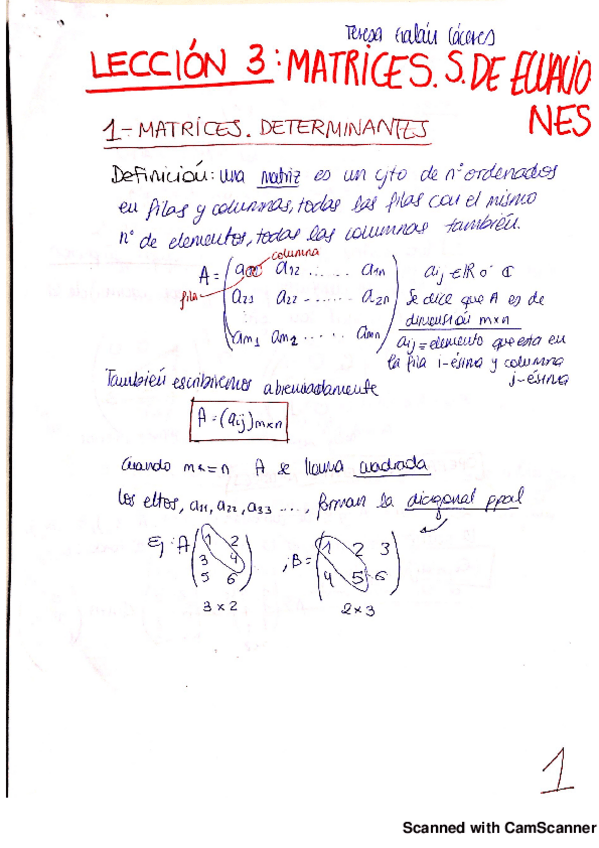 Teresa Galán Cáceres
LECCIÓN 3: MATRICES. S. DE ECUACIO
NES
1-MATRICES. DETERMINANTES
Definición: una matriz es un cjto de nº ordenados
en filas y columnas, todas las filas con el mismo
nº de elementos, todas las columnas también.
columna
A = ( a₁₂ ...... a₁ₙ ) aᵢⱼ ∈ ℝ o ℂ
fila
a₂₁ a₂₂ ...... a₂ₙ Se dice que A es de
dimensión m×n
aₘ₁ aₘ₂ ...... aₘₙ aᵢⱼ = elemento que esta en
la fila i-ésima y columna
j-ésima
También escribiremos abreviadamente
A = (aᵢⱼ)ₘₓₙ
Cuando m = n A se llama cuadrada
los eltos, a₁₁, a₂₂, a₃₃ ..., forman la diagonal ppal
Ej: A ( 1 2 ; B = ( 1 2 3
3 4
5 6 ) 4 5 6 )
3 × 2 2 × 3
1
Scanned with CamScanner